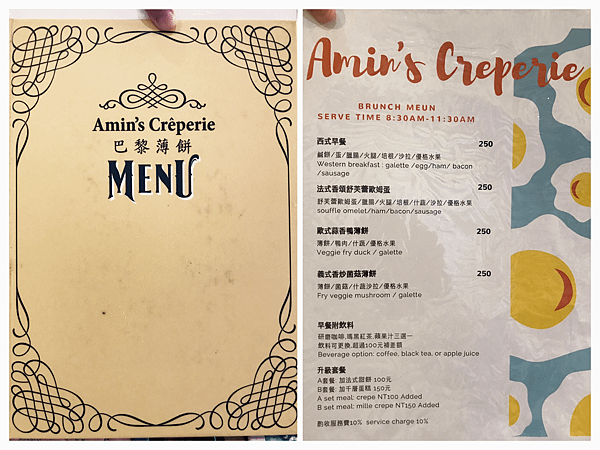 Amin's Crêperie
巴黎薄餅
MENU
Amin's Creperie
BRUNCH MEUN
SERVE TIME 8:30AM-11:30AM
西式早餐 250
鹹餅/蛋/臘腸/火腿/培根/沙拉/優格水果
Western breakfast : galette /egg/ham/ bacon
/sausage
法式香頌舒芙蕾歐姆蛋 250
舒芙蕾歐姆蛋/臘腸/火腿/培根/什蔬/沙拉/優格水果
souffle omelet/ham/bacon/sausage
歐式蒜香鴨薄餅 250
薄餅/鴨肉/什蔬/優格水果
Veggie fry duck / galette
義式香炒菌菇薄餅 250
薄餅/菌菇/什蔬沙拉/優格水果
Fry veggie mushroom / galette
早餐附飲料
研磨咖啡.瑪黑紅茶.蘋果汁三選一
飲料可更換.超過100元補差額
Beverage option: coffee, black tea, or apple juice
升級套餐
A套餐: 加法式甜餅 100元
B套餐: 加千層蛋糕 150元
A set meal: crepe NT100 Added
B set meal: mille crepe NT150 Added
酌收服務費10% service charge 10%